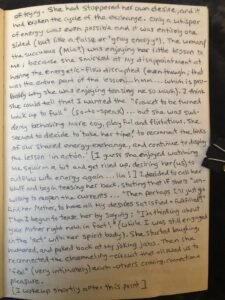 of orgy. She had stoppered her own desire, and it
had broken the cycle of the exchange. Only a whisper
of energy was even possible and it was entirely one
sided (but like a false or "ghost" energy). The woman/
the succubus (Mia?) was enjoying her little lesson to
me because she smirked at my disappointment at
having the energetic-flow disrupted (even though, that
was the entire part of the lesson...hmm... which is pro-
bably why she was enjoying teasing me so much). I think
she could tell that I wanted the "faucet to be turned
back up to full" (so-to-speak)... but she was sud-
denly behaving more coy, playful and flirtatious. She
seemed to decide to "take her time" to reconnect the links
of our shared energy-exchange, and continue to display
the lesson 'in action'. [I guess she enjoyed watching
me squirm a bit and get riled up, desiring her (us) to
outflow with energy again... lol!] I decided to call her
bluff and begin teasing her back, stating that if there "un-
willing to reopen the currents... "Then perhaps I'll just go
to your Mother, to have all my desires satisfied & fulfilled!"
Then I began to tease her by saying: "I'm thinking about
your Mother right now, in fact!" (while I was still engaged
in the 'act' with her spirit body). She started laughing
humored, and poked back at my joking jabs. Then she
reconnected the channeling-circuit and allowed us to
feel (very intimately) each-others craving, connection &
pleasure.
[I woke up shortly after this point]